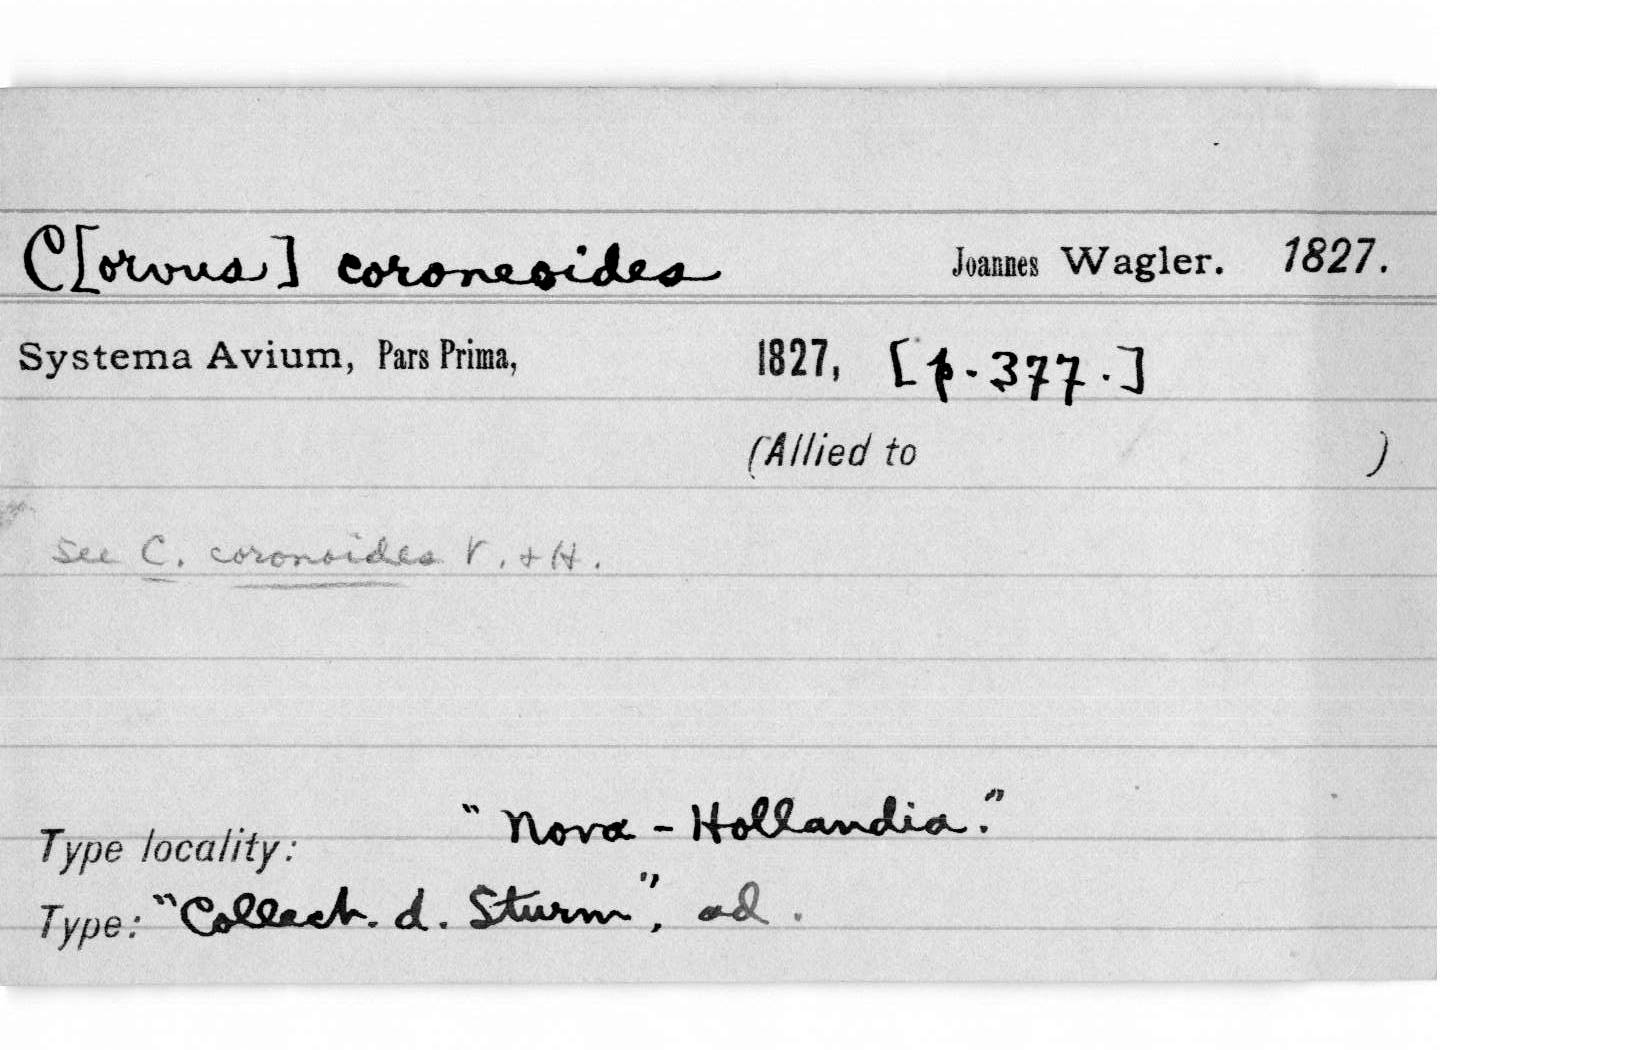 C[orvus] coroneoides Joannes Wagler. 1827.
Systema Avium, Pars Prima, 1827, [p. 377.]
(Allied to )
See C. coronoides V. + H.
Type locality: "Nova-Hollandia."
Type: "Collect. d. Sturm", ad.